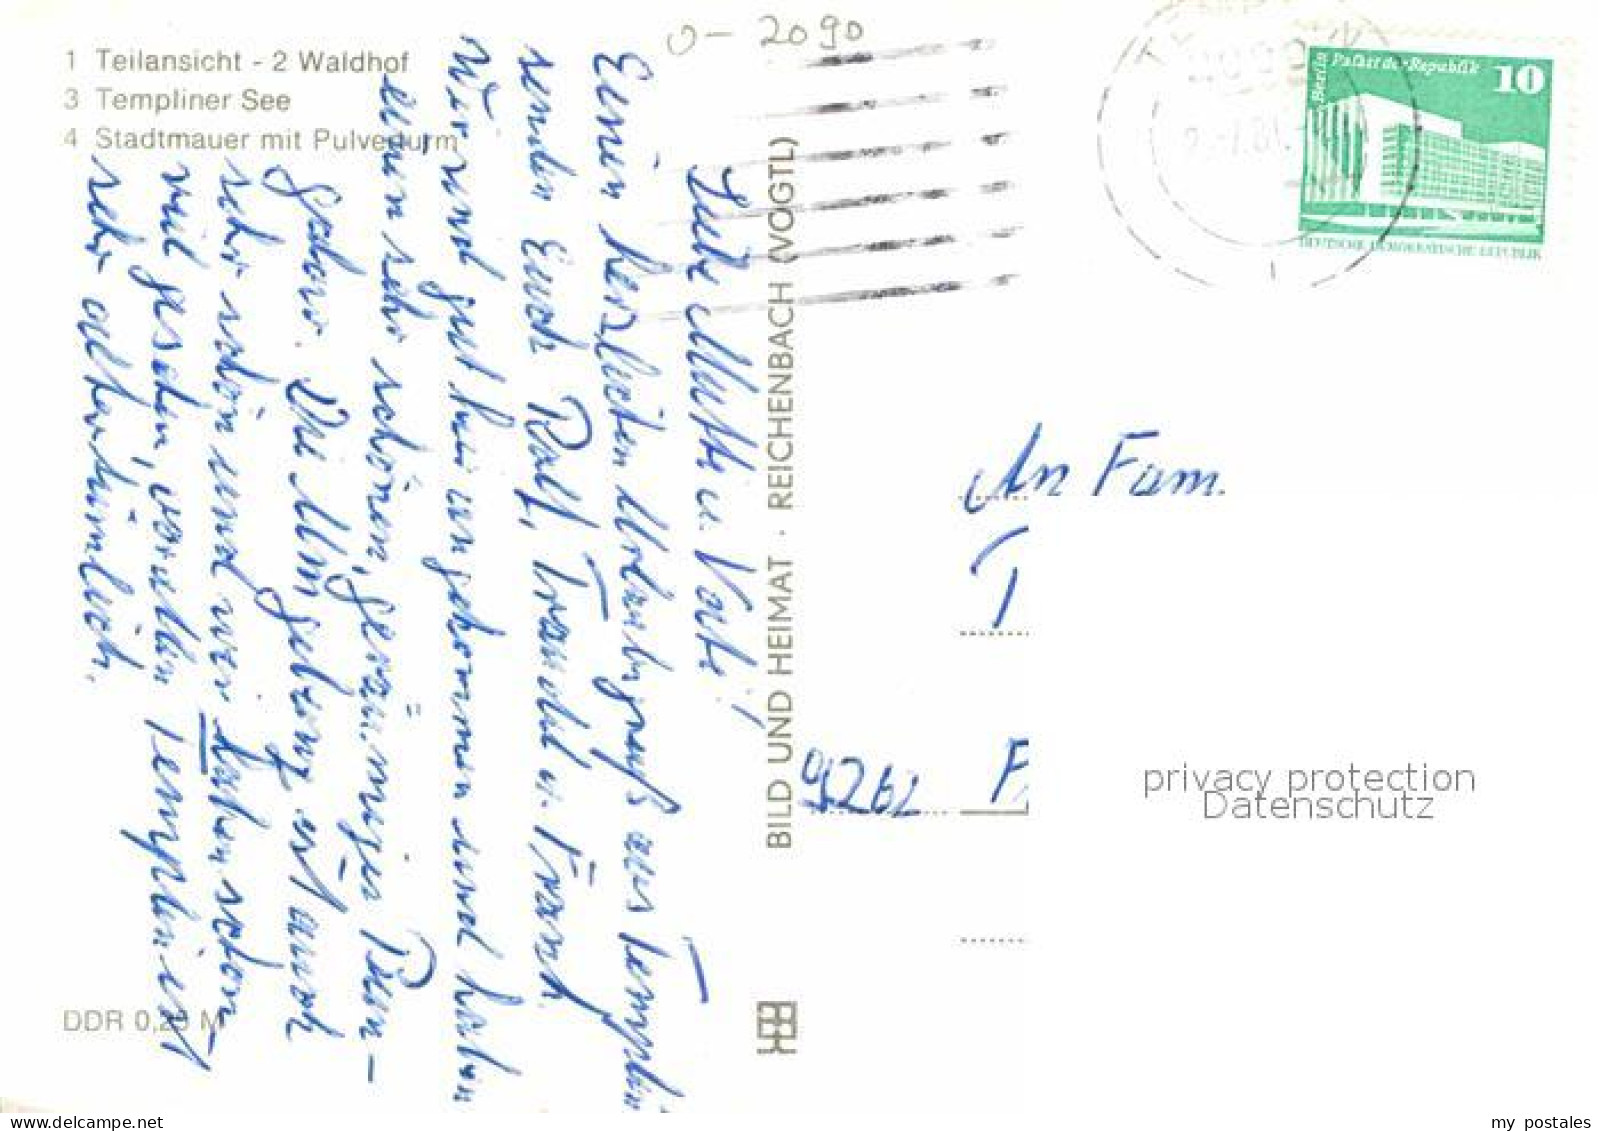 1 Teilansicht - 2 Waldhof
3 Templiner See
4 Stadtmauer mit Pulverturm
O-2090
Berlin Palast der Republik 10
DEUTSCHE DEMOKRATISCHE REPUBLIK
Liebe Mutti u. Vati!
Einen herzlichen Urlaubsgruß aus Templin
senden Euch Ralf, Traudel u. Frank.
Wir sind gut hier angekommen und haben
einen sehr schönen, geräumigen Bun-
galow. Die Umgebung ist auch
sehr schön und wir haben schon
viel gesehen, vor allem Templin ist
sehr altertümlich.
BILD UND HEIMAT · REICHENBACH (VOGTL)
An Fam.
T
9262 F
privacy protection
Datenschutz
DDR 0,25 M
my postales